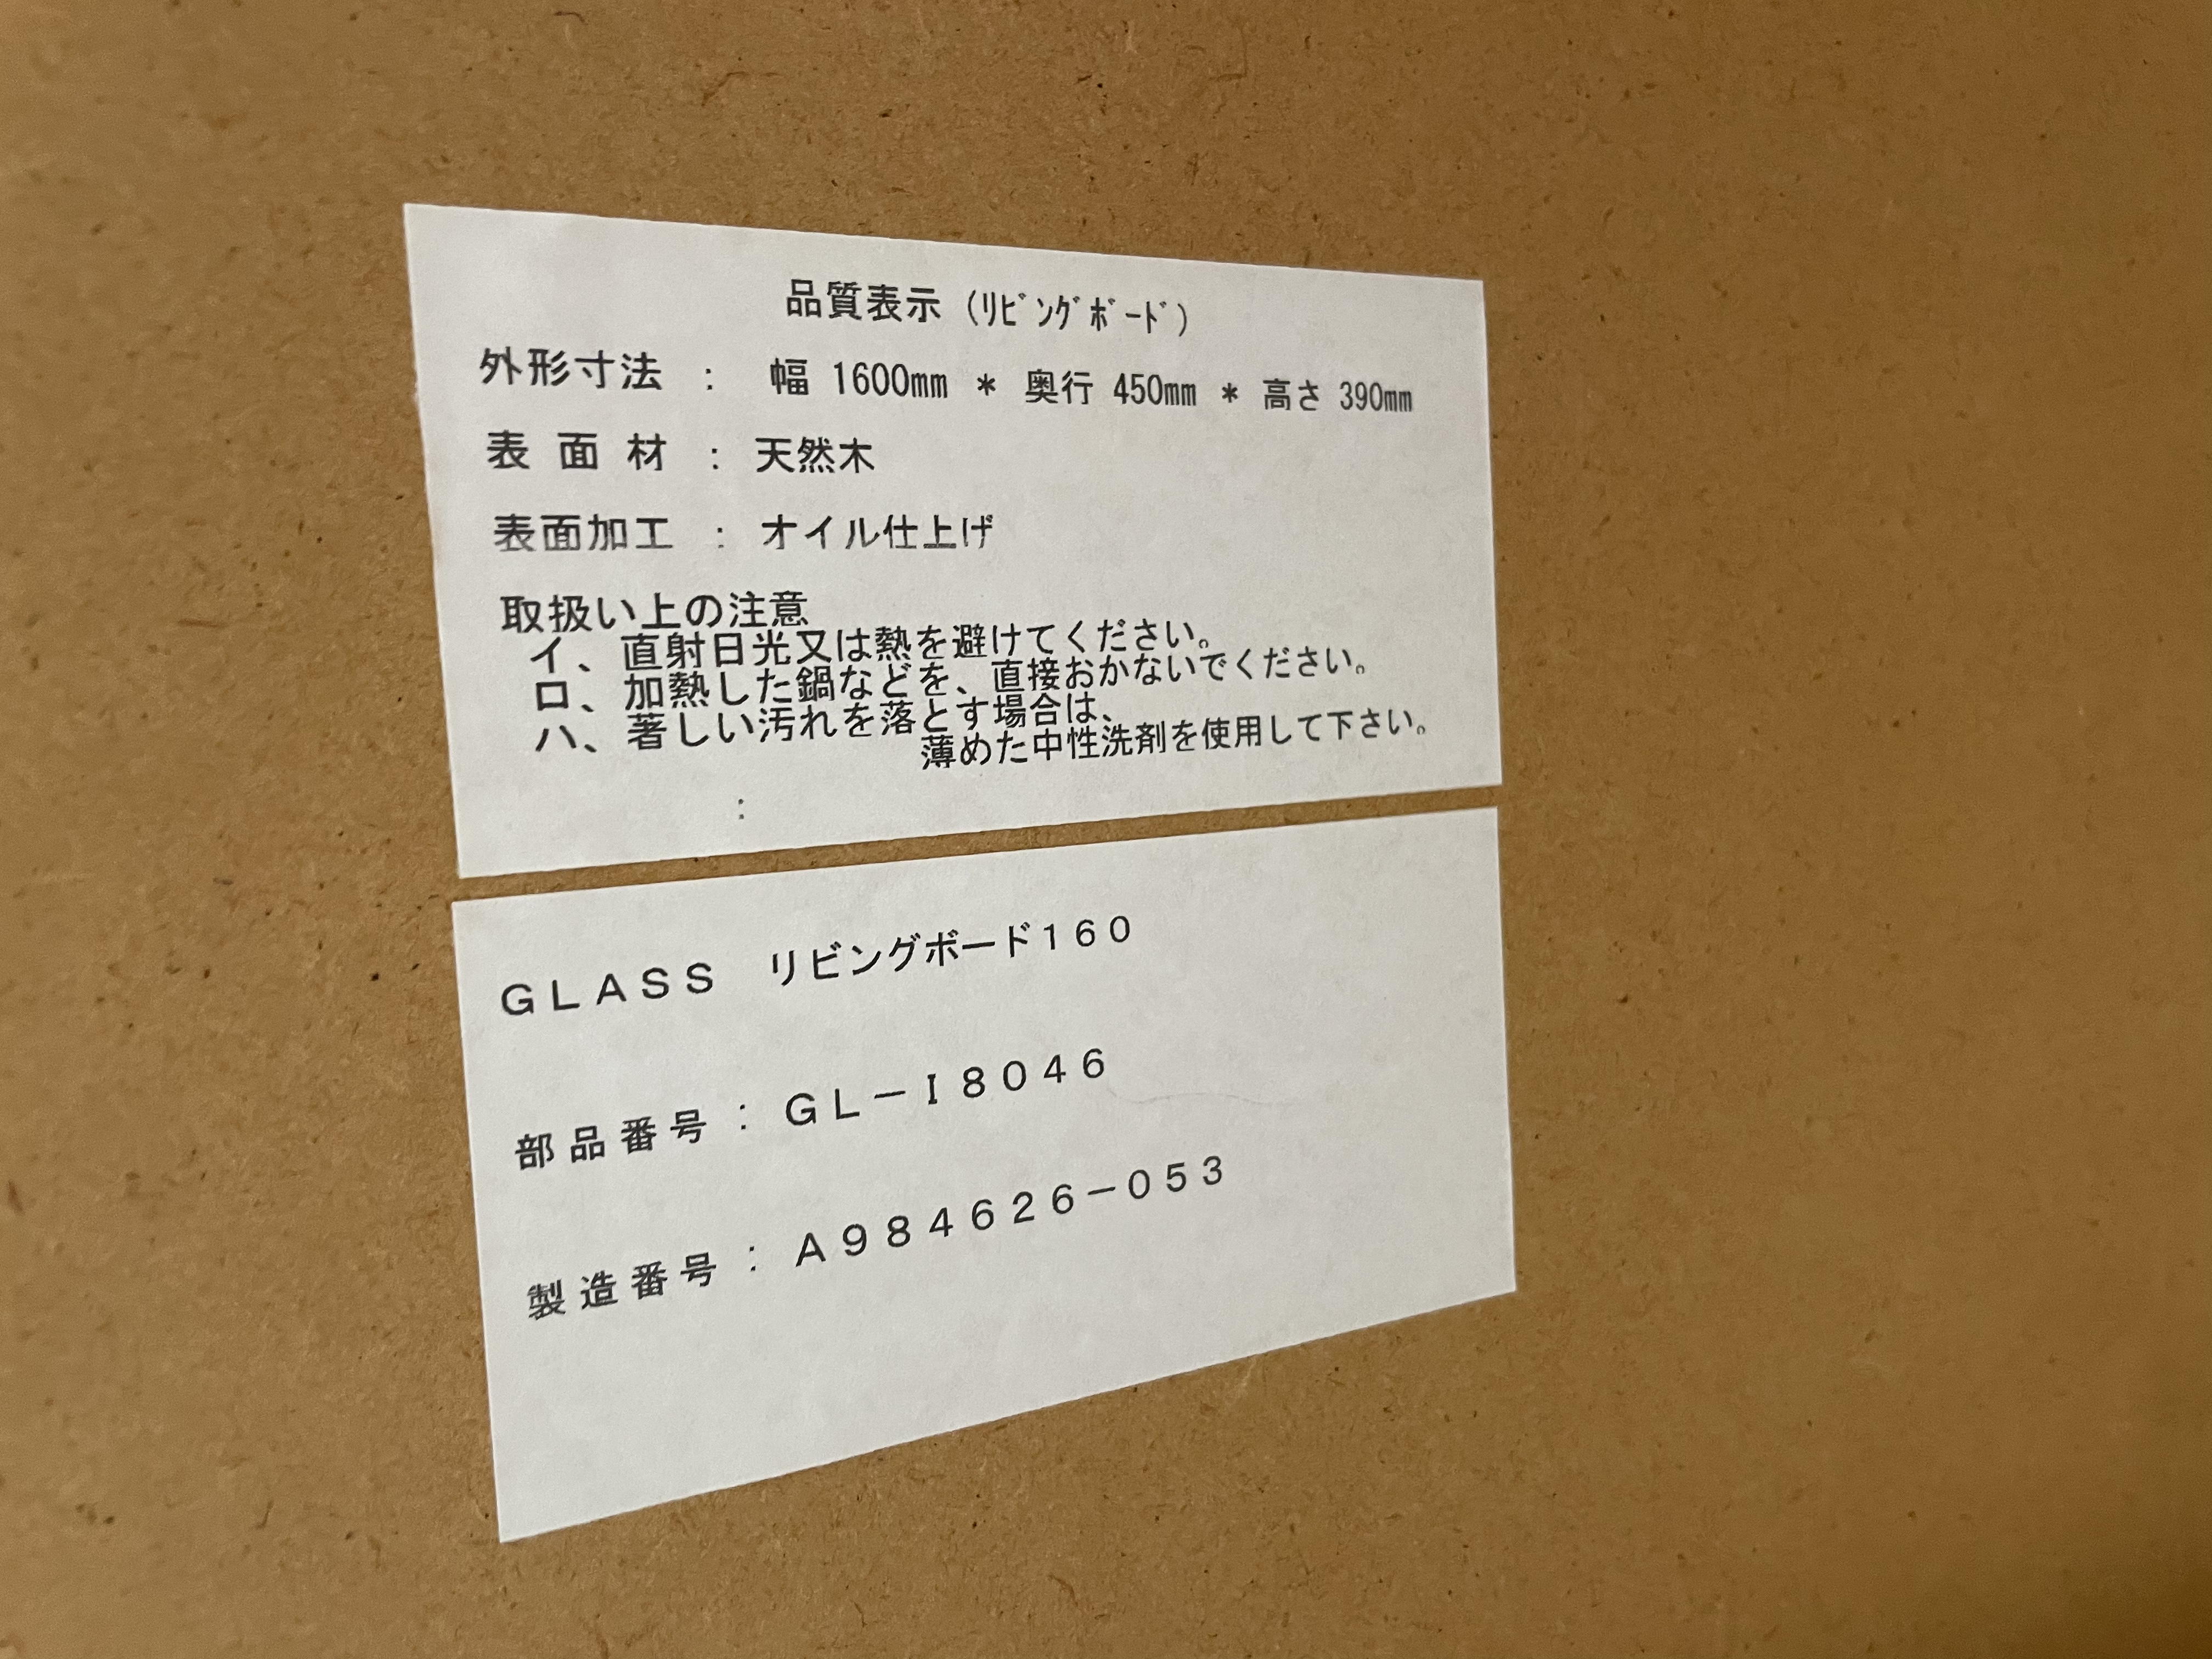 品質表示 (ﾘﾋﾞﾝｸﾞﾎﾞｰﾄﾞ)
外形寸法 : 幅 1600mm * 奥行 450mm * 高さ 390mm
表面材 : 天然木
表面加工 : オイル仕上げ
取扱い上の注意
イ、直射日光又は熱を避けてください。
ロ、加熱した鍋などを、直接おかないでください。
ハ、著しい汚れを落とす場合は、
薄めた中性洗剤を使用して下さい。
:
ＧＬＡＳＳ　リビングボード１６０
部品番号：ＧＬ－Ｉ８０４６
製造番号：Ａ９８４６２６－０５３